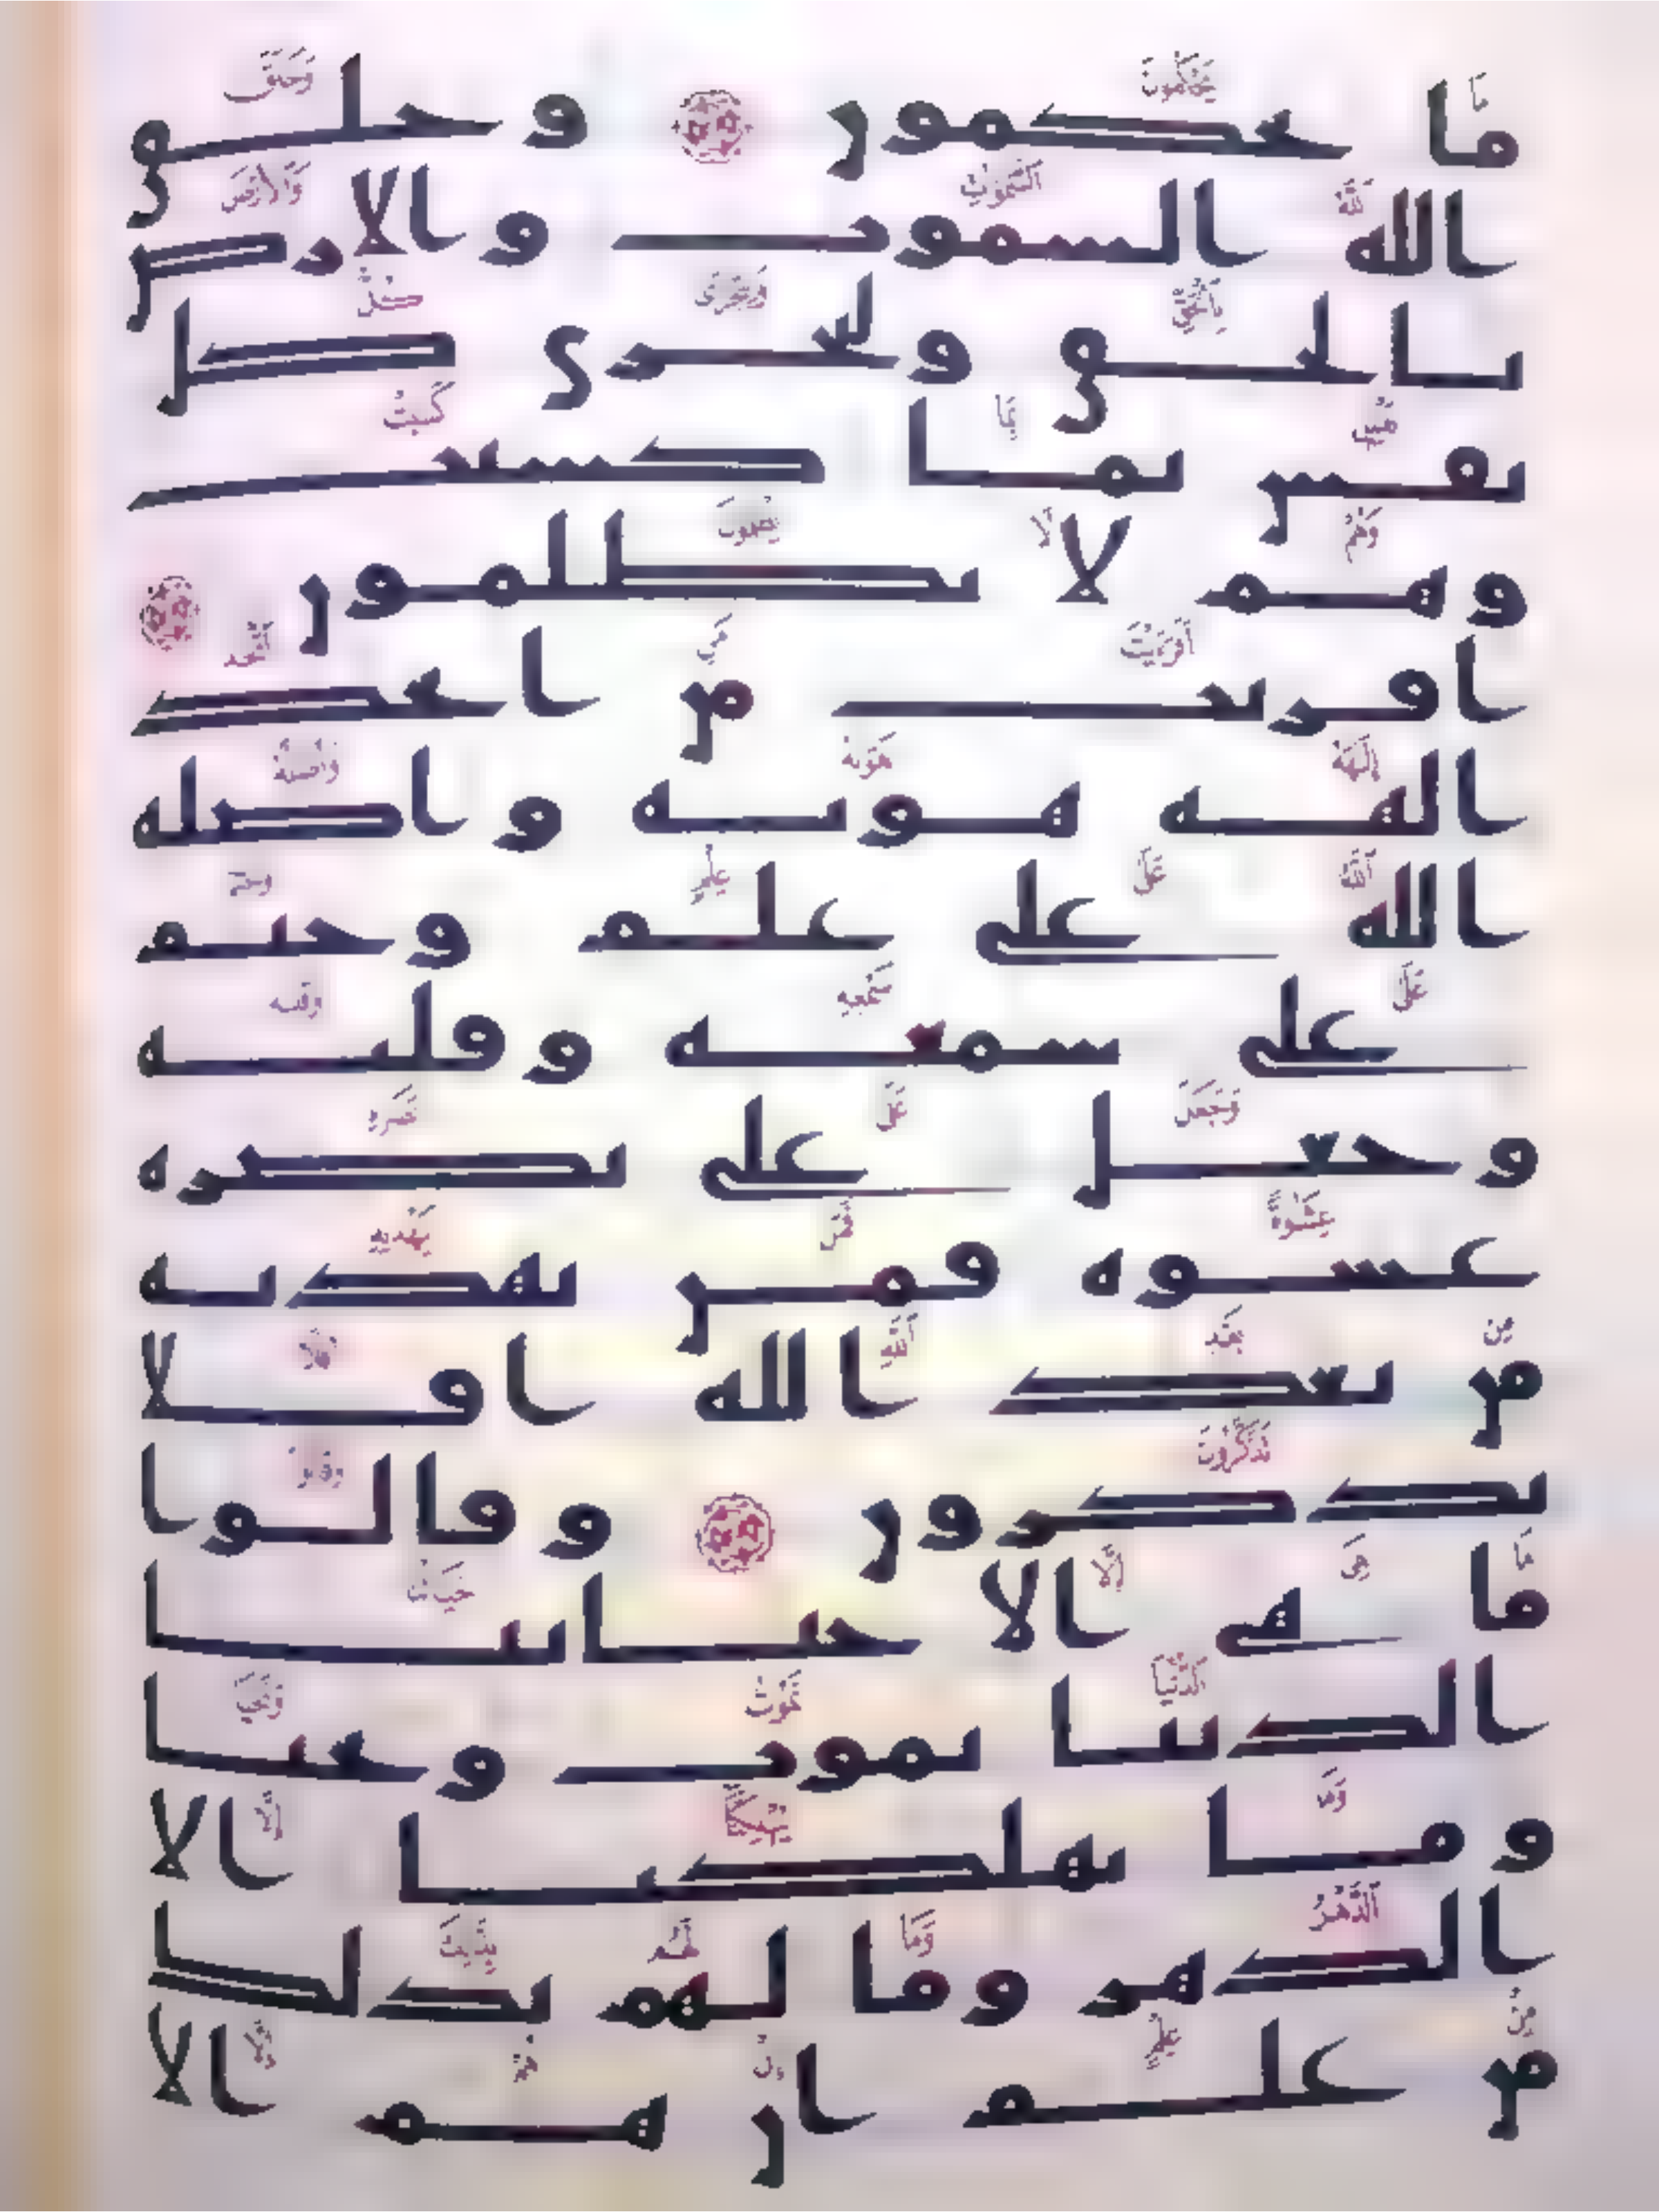 ما يحكمون وخلق
الله السموت والارض
بالحق ولتجزى كل
نفس بما كسبت
وهم لا يظلمون
افريت من اتخذ
الهه هويه واضله
الله على علم وختم
على سمعه وقلبه
وجعل على بصره
غشوه فمن يهديه
من بعد الله افلا
تذكرون وقالوا
ما هى الا حياتنا
الدنيا نموت ونحيا
وما يهلكنا الا
الدهر وما لهم بذلك
من علم ان هم الا